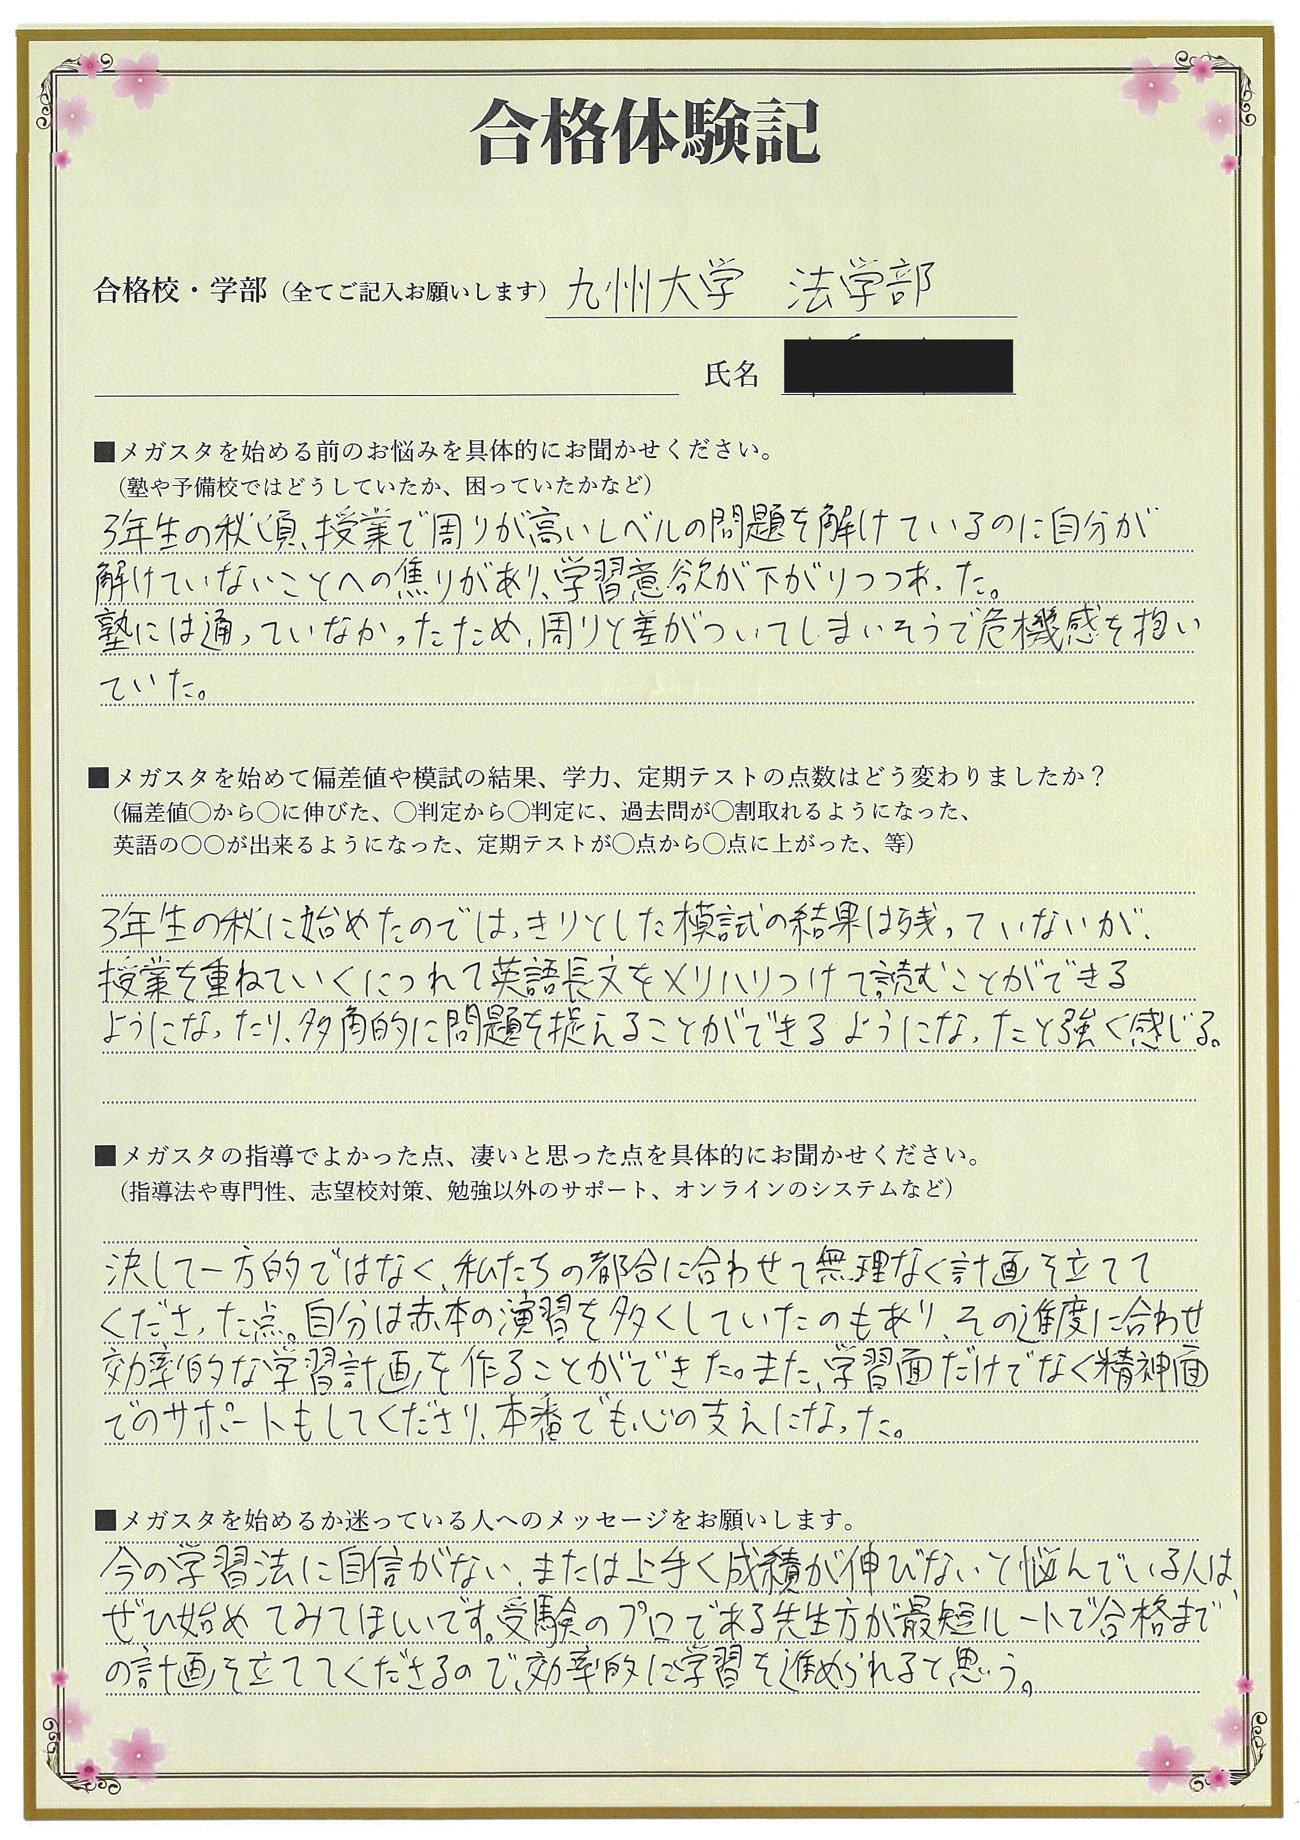 合格体験記
合格校・学部（全てご記入お願いします） 九州大学　法学部
氏名
■メガスタを始める前のお悩みを具体的にお聞かせください。
（塾や予備校ではどうしていたか、困っていたかなど）
3年生の秋頃、授業で周りが高いレベルの問題を解けているのに自分が
解けていないことへの焦りがあり、学習意欲が下がりつつあった。
塾には通っていなかったため、周りと差がついてしまいそうで危機感を抱い
ていた。
■メガスタを始めて偏差値や模試の結果、学力、定期テストの点数はどう変わりましたか？
（偏差値〇から〇に伸びた、〇判定から〇判定に、過去問が〇割取れるようになった、
英語の〇〇が出来るようになった、定期テストが〇点から〇点に上がった、等）
3年生の秋に始めたのではっきりとした模試の結果は残っていないが、
授業を重ねていくにつれて英語長文をメリハリつけて読むことができる
ようになったり、多角的に問題を捉えることができるようになったと強く感じる。
■メガスタの指導でよかった点、凄いと思った点を具体的にお聞かせください。
（指導法や専門性、志望校対策、勉強以外のサポート、オンラインのシステムなど）
決して一方的ではなく、私たちの都合に合わせて無理なく計画を立てて
くださった点。自分は赤本の演習を多くしていたのもあり、その進度に合わせ
効率的な学習計画を作ることができた。また、学習面だけでなく精神面
でのサポートもしてくださり、本番でも心の支えになった。
■メガスタを始めるか迷っている人へのメッセージをお願いします。
今の学習法に自信がない、または上手く成績が伸びないと悩んでいる人は、
ぜひ始めてみてほしいです。受験のプロである先生方が最短ルートで合格まで
の計画を立ててくださるので、効率的に学習を進められると思う。